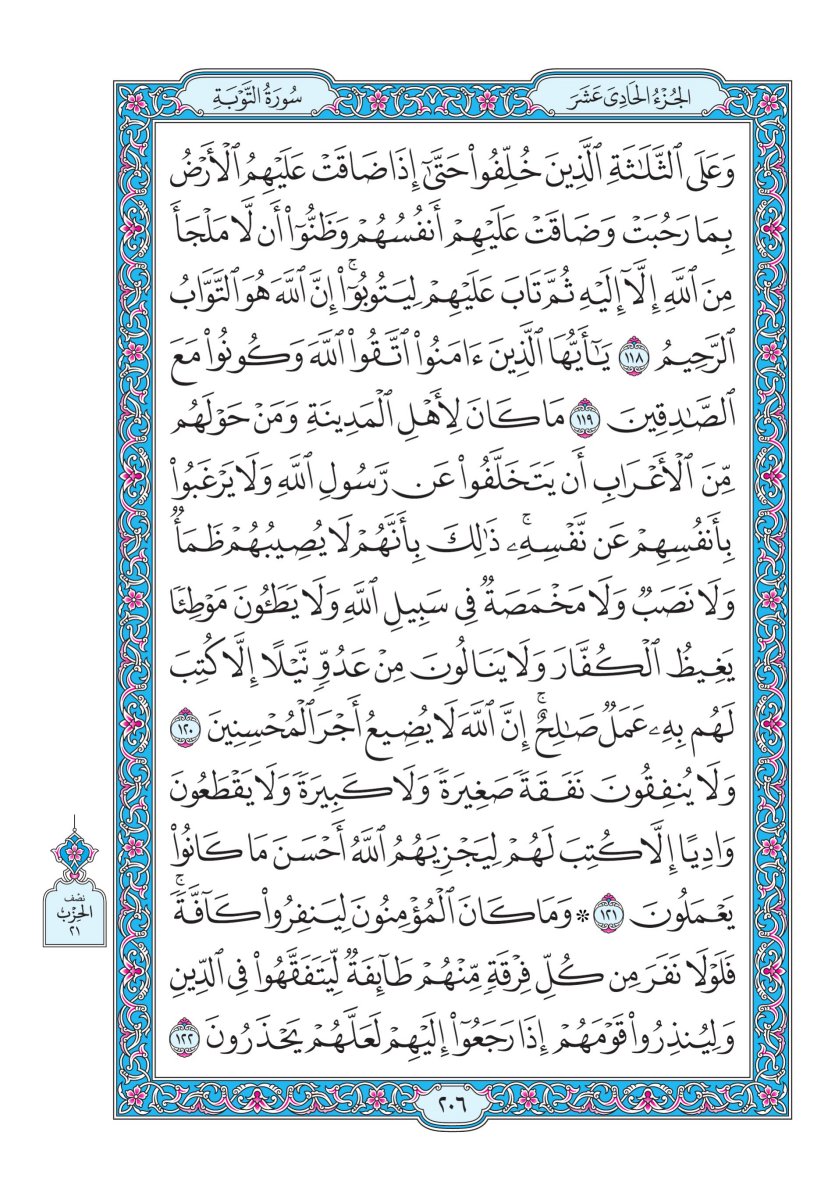 الجُزْءُ الحَادِىَ عَشَرَ
سُورَةُ التَّوْبَةِ
وَعَلَى ٱلثَّلَٰثَةِ ٱلَّذِينَ خُلِّفُواْ حَتَّىٰٓ إِذَا ضَاقَتْ عَلَيْهِمُ ٱلْأَرْضُ
بِمَا رَحُبَتْ وَضَاقَتْ عَلَيْهِمْ أَنفُسُهُمْ وَظَنُّوٓاْ أَن لَّا مَلْجَأَ
مِنَ ٱللَّهِ إِلَّآ إِلَيْهِ ثُمَّ تَابَ عَلَيْهِمْ لِيَتُوبُوٓاْۚ إِنَّ ٱللَّهَ هُوَ ٱلتَّوَّابُ
ٱلرَّحِيمُ ١١٨ يَٰٓأَيُّهَا ٱلَّذِينَ ءَامَنُواْ ٱتَّقُواْ ٱللَّهَ وَكُونُواْ مَعَ
ٱلصَّٰدِقِينَ ١١٩ مَا كَانَ لِأَهْلِ ٱلْمَدِينَةِ وَمَنْ حَوْلَهُم
مِّنَ ٱلْأَعْرَابِ أَن يَتَخَلَّفُواْ عَن رَّسُولِ ٱللَّهِ وَلَا يَرْغَبُواْ
بِأَنفُسِهِمْ عَن نَّفْسِهِۦۚ ذَٰلِكَ بِأَنَّهُمْ لَا يُصِيبُهُمْ ظَمَأٌ
وَلَا نَصَبٌ وَلَا مَخْمَصَةٌ فِى سَبِيلِ ٱللَّهِ وَلَا يَطَـُٔونَ مَوْطِئًا
يَغِيظُ ٱلْكُفَّارَ وَلَا يَنَالُونَ مِنْ عَدُوٍّ نَّيْلًا إِلَّا كُتِبَ
لَهُم بِهِۦ عَمَلٌ صَٰلِحٌۚ إِنَّ ٱللَّهَ لَا يُضِيعُ أَجْرَ ٱلْمُحْسِنِينَ ١٢٠
وَلَا يُنفِقُونَ نَفَقَةً صَغِيرَةً وَلَا كَبِيرَةً وَلَا يَقْطَعُونَ
وَادِيًا إِلَّا كُتِبَ لَهُمْ لِيَجْزِيَهُمُ ٱللَّهُ أَحْسَنَ مَا كَانُواْ
يَعْمَلُونَ ١٢١ * وَمَا كَانَ ٱلْمُؤْمِنُونَ لِيَنفِرُواْ كَآفَّةًۚ
فَلَوْلَا نَفَرَ مِن كُلِّ فِرْقَةٍ مِّنْهُمْ طَآئِفَةٌ لِّيَتَفَقَّهُواْ فِى ٱلدِّينِ
وَلِيُنذِرُواْ قَوْمَهُمْ إِذَا رَجَعُوٓاْ إِلَيْهِمْ لَعَلَّهُمْ يَحْذَرُونَ ١٢٢
نصْف
الحِزْب
٢١
٢٠٦